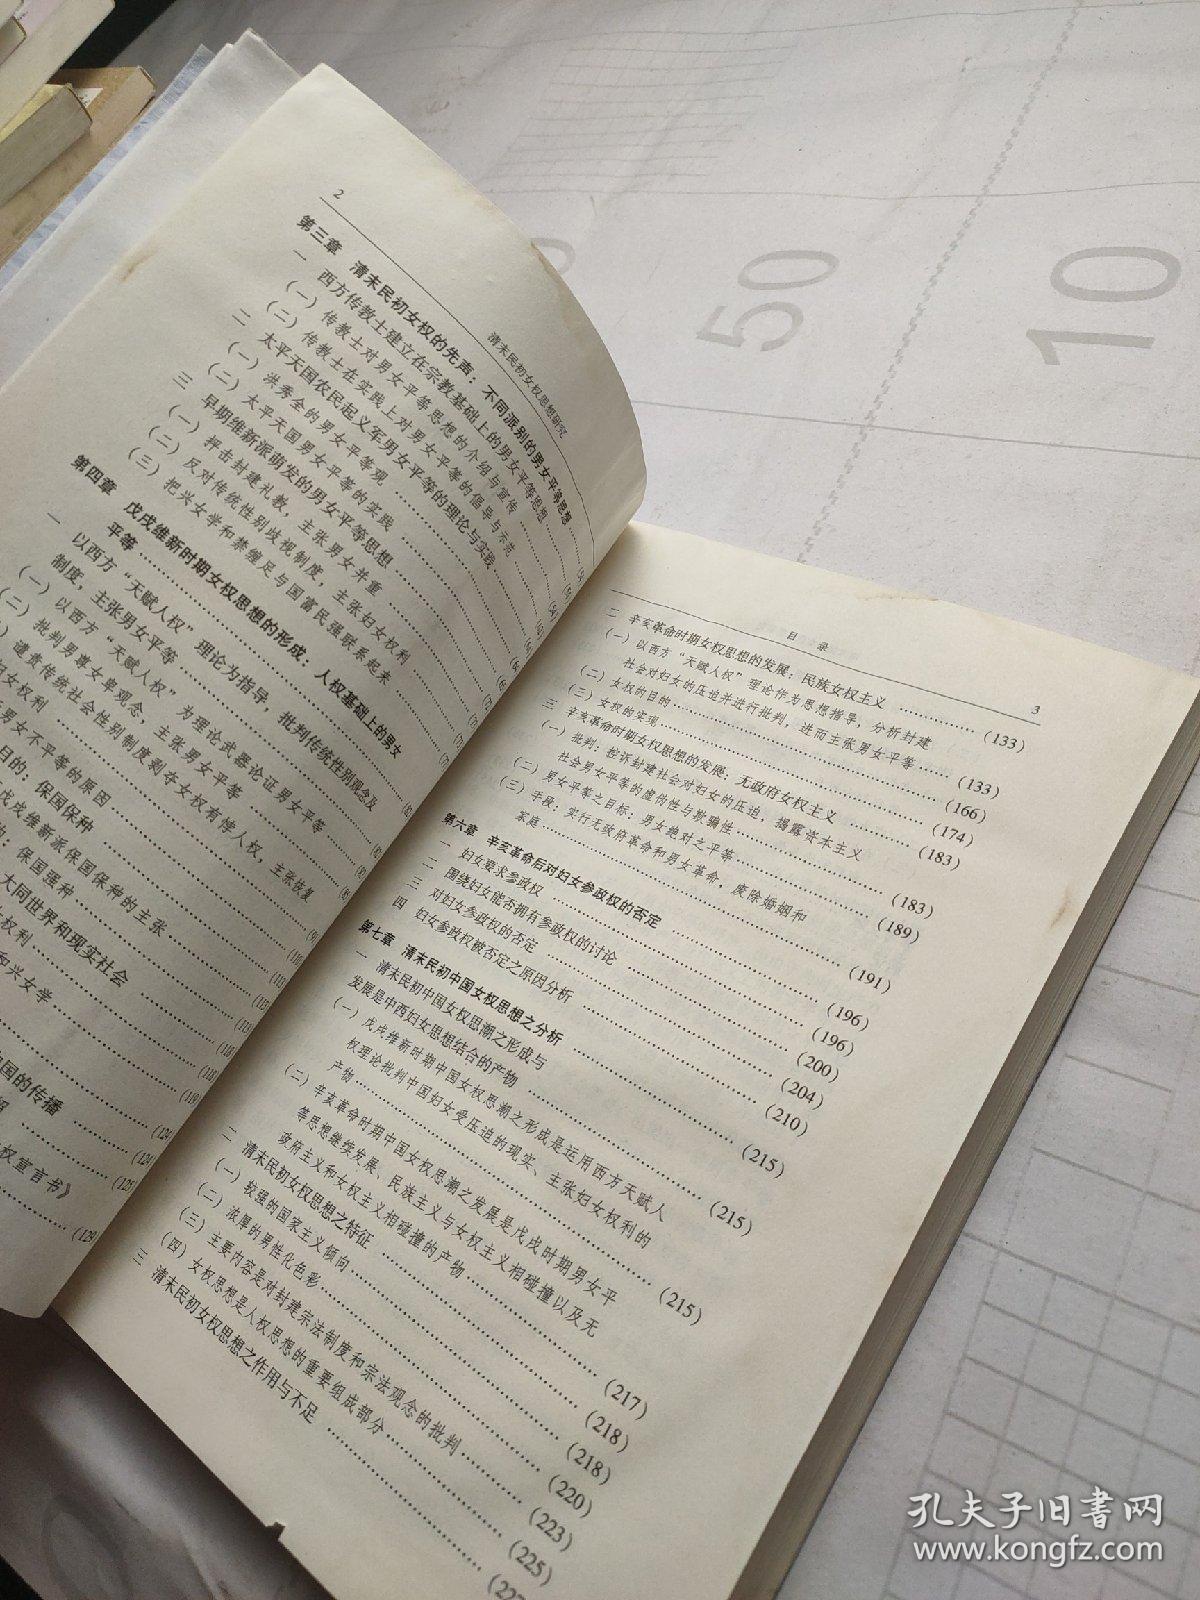 2
清末民初女权思想研究
第三章 清末民初女权的先声：不同派别的男女平等思想
一 西方传教士建立在宗教基础上的男女平等思想
（一）传教士对男女平等思想的介绍与宣传
（二）传教士在实践上对男女平等的倡导与示范
二 太平天国农民起义军男女平等的理论与实践
（一）洪秀全的男女平等观
（二）太平天国男女平等的实践
三 早期维新派萌发的男女平等思想
（一）抨击封建礼教，主张男女并重
（二）反对传统性别歧视制度，主张妇女权利
（三）把兴女学和禁缠足与国富民强联系起来
第四章 戊戌维新时期女权思想的形成：人权基础上的男女
平等
一 以西方“天赋人权”理论为指导，批判传统性别观念及
制度，主张男女平等
（一）以西方“天赋人权”为理论武器论证男女平等
（二）批判男尊女卑观念，主张男女平等
谴责传统社会性别制度剥夺女权有悖人权，主张恢复
妇女权利
男女不平等的原因
目的：保国保种
戊戌维新派保国保种的主张
：保国强种
大同世界和现实社会
权利
和兴女学
国的传播
权宣言书》
目 录
3
二 辛亥革命时期女权思想的发展：民族女权主义 (133)
（一）以西方“天赋人权”理论作为思想指导，分析封建
社会对妇女的压迫并进行批判，进而主张男女平等 (133)
（二）女权的目的 (166)
（三）女权的实现 (174)
三 辛亥革命时期女权思想的发展：无政府女权主义 (183)
（一）批判：控诉封建社会对妇女的压迫，揭露资本主义
社会男女平等的虚伪性与欺骗性 (183)
（二）男女平等之目标：男女绝对之平等 (189)
（三）手段：实行无政府革命和男女革命，废除婚姻和
家庭 (191)
第六章 辛亥革命后对妇女参政权的否定 (196)
一 妇女要求参政权 (196)
二 围绕妇女能否拥有参政权的讨论 (200)
三 对妇女参政权的否定 (204)
四 妇女参政权被否定之原因分析 (210)
第七章 清末民初中国女权思想之分析 (215)
一 清末民初中国女权思潮之形成与
发展是中西妇女思想结合的产物 (215)
（一）戊戌维新时期中国女权思潮之形成是运用西方天赋人
权理论批判中国妇女受压迫的现实、主张妇女权利的
产物 (215)
（二）辛亥革命时期中国女权思潮之发展是戊戌时期男女平
等思想继续发展、民族主义与女权主义相碰撞以及无
政府主义和女权主义相碰撞的产物 (217)
二 清末民初女权思想之特征 (218)
（一）较强的国家主义倾向 (218)
（二）浓厚的男性化色彩 (220)
（三）主要内容是对封建宗法制度和宗法观念的批判 (223)
（四）女权思想是人权思想的重要组成部分 (225)
三 清末民初女权思想之作用与不足
孔夫子旧书网
www.kongfz.com
50
10